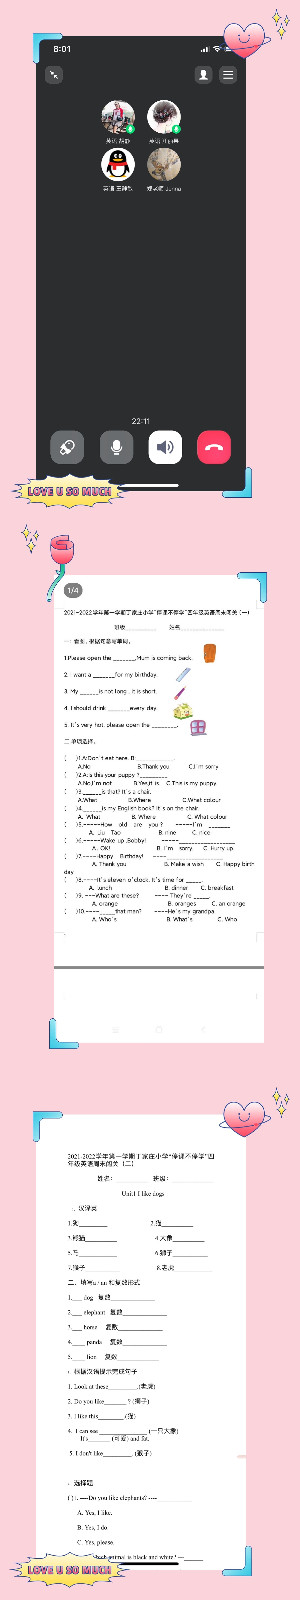 8:01
英语 王钟钦
22:11
LOVE U SO MUCH
1/4
2021-2022学年第一学期丁家庄小学“停课不停学”四年级英语周末闯关（一）
班级__________ 姓名__________
一 看图，根据句意写单词。
1.Please open the _______,Mum is coming back.
2. I want a _______for my birthday.
3. My ______is not long , it is short.
4. I should drink _______every day.
5. It's very hot, please open the ________.
二 单项选择。
( )1.A:Don't eat here. B:____________.
A.No B.Thank you C.I'm sorry
( )2.A:Is this your puppy ?__________
A.No,I'm not B.Yes,it is C.This is my puppy
( )3.______is that? It's a chair.
A.What B.Where C.What colour
( )4.______is my English book? It's on the chair.
A. What B. Where C. What colour
( )5.-----How old are you ? -----I'm ______
A. Liu Tao B. nine C. nice
( )6.-----Wake up ,Bobby! -----____________
A. OK! B. I'm sorry C. Hurry up
( )7.----Happy Birthday! ----____________
A. Thank you B. Make a wish C. Happy birth
day
( )8.----It's eleven o'clock. It's time for _____.
A. lunch B. dinner C. breakfast
( )9.---What are these? ---- They're _____.
A. orange B. oranges C. an orange
( )10.----_____that man? ----He's my grandpa.
A. Who's B. What's C. Who
2021-2022学年第一学期丁家庄小学“停课不停学”四
年级英语周末闯关（二）
姓名：__________ 班级：__________
Unit1 I like dogs
一、汉译英
1.狗________ 2.猫________
3.熊猫________ 4.大象________
5.马________ 6.狮子________
7.猴子________ 8.老虎________
二、填写a / an 和复数形式
1.___ dog 复数____________
2.___ elephant 复数____________
3.___ horse 复数____________
4.___ panda 复数____________
5.___ lion 复数____________
根据汉语提示完成句子
1. Look at these________.(老虎)
2. Do you like_______ ? (狮子)
3. I like this_______. (猫)
4. I can see ____________. (一只大象)
It's______ (可爱) and fat.
5. I don't like________. (猴子)
选择题
( )1. ----Do you like elephants? ----__________
A. Yes, I like.
B. Yes, I do.
C. Yes, please.
animal is black and white? —______
LOVE U SO MUCH